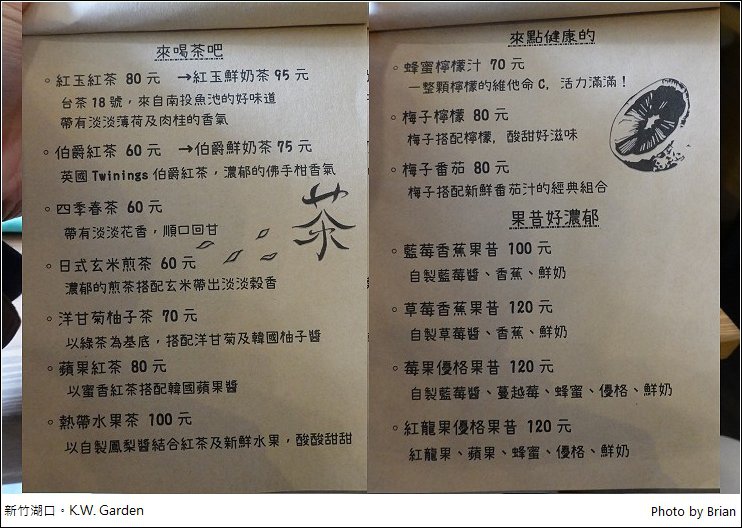 來喝茶吧
紅玉紅茶 80 元 →紅玉鮮奶茶 95 元
台茶 18 號，來自南投魚池的好味道
帶有淡淡薄荷及肉桂的香氣
伯爵紅茶 60 元 →伯爵鮮奶茶 75 元
英國 Twinings 伯爵紅茶，濃郁的佛手柑香氣
四季春茶 60 元
帶有淡淡花香，順口回甘
茶
日式玄米煎茶 60 元
濃郁的煎茶搭配玄米帶出淡淡穀香
洋甘菊柚子茶 70 元
以綠茶為基底，搭配洋甘菊及韓國柚子醬
蘋果紅茶 80 元
以蜜香紅茶搭配韓國蘋果醬
熱帶水果茶 100 元
以自製鳳梨醬結合紅茶及新鮮水果，酸酸甜甜
來點健康的
蜂蜜檸檬汁 70 元
一整顆檸檬的維他命 C，活力滿滿！
梅子檸檬 80 元
梅子搭配檸檬，酸甜好滋味
梅子番茄 80 元
梅子搭配新鮮番茄汁的經典組合
果昔好濃郁
藍莓香蕉果昔 100 元
自製藍莓醬、香蕉、鮮奶
草莓香蕉果昔 120 元
自製草莓醬、香蕉、鮮奶
莓果優格果昔 120 元
自製藍莓醬、蔓越莓、蜂蜜、優格、鮮奶
紅龍果優格果昔 120 元
紅龍果、蘋果、蜂蜜、優格、鮮奶
新竹湖口。K.W. Garden
Photo by Brian